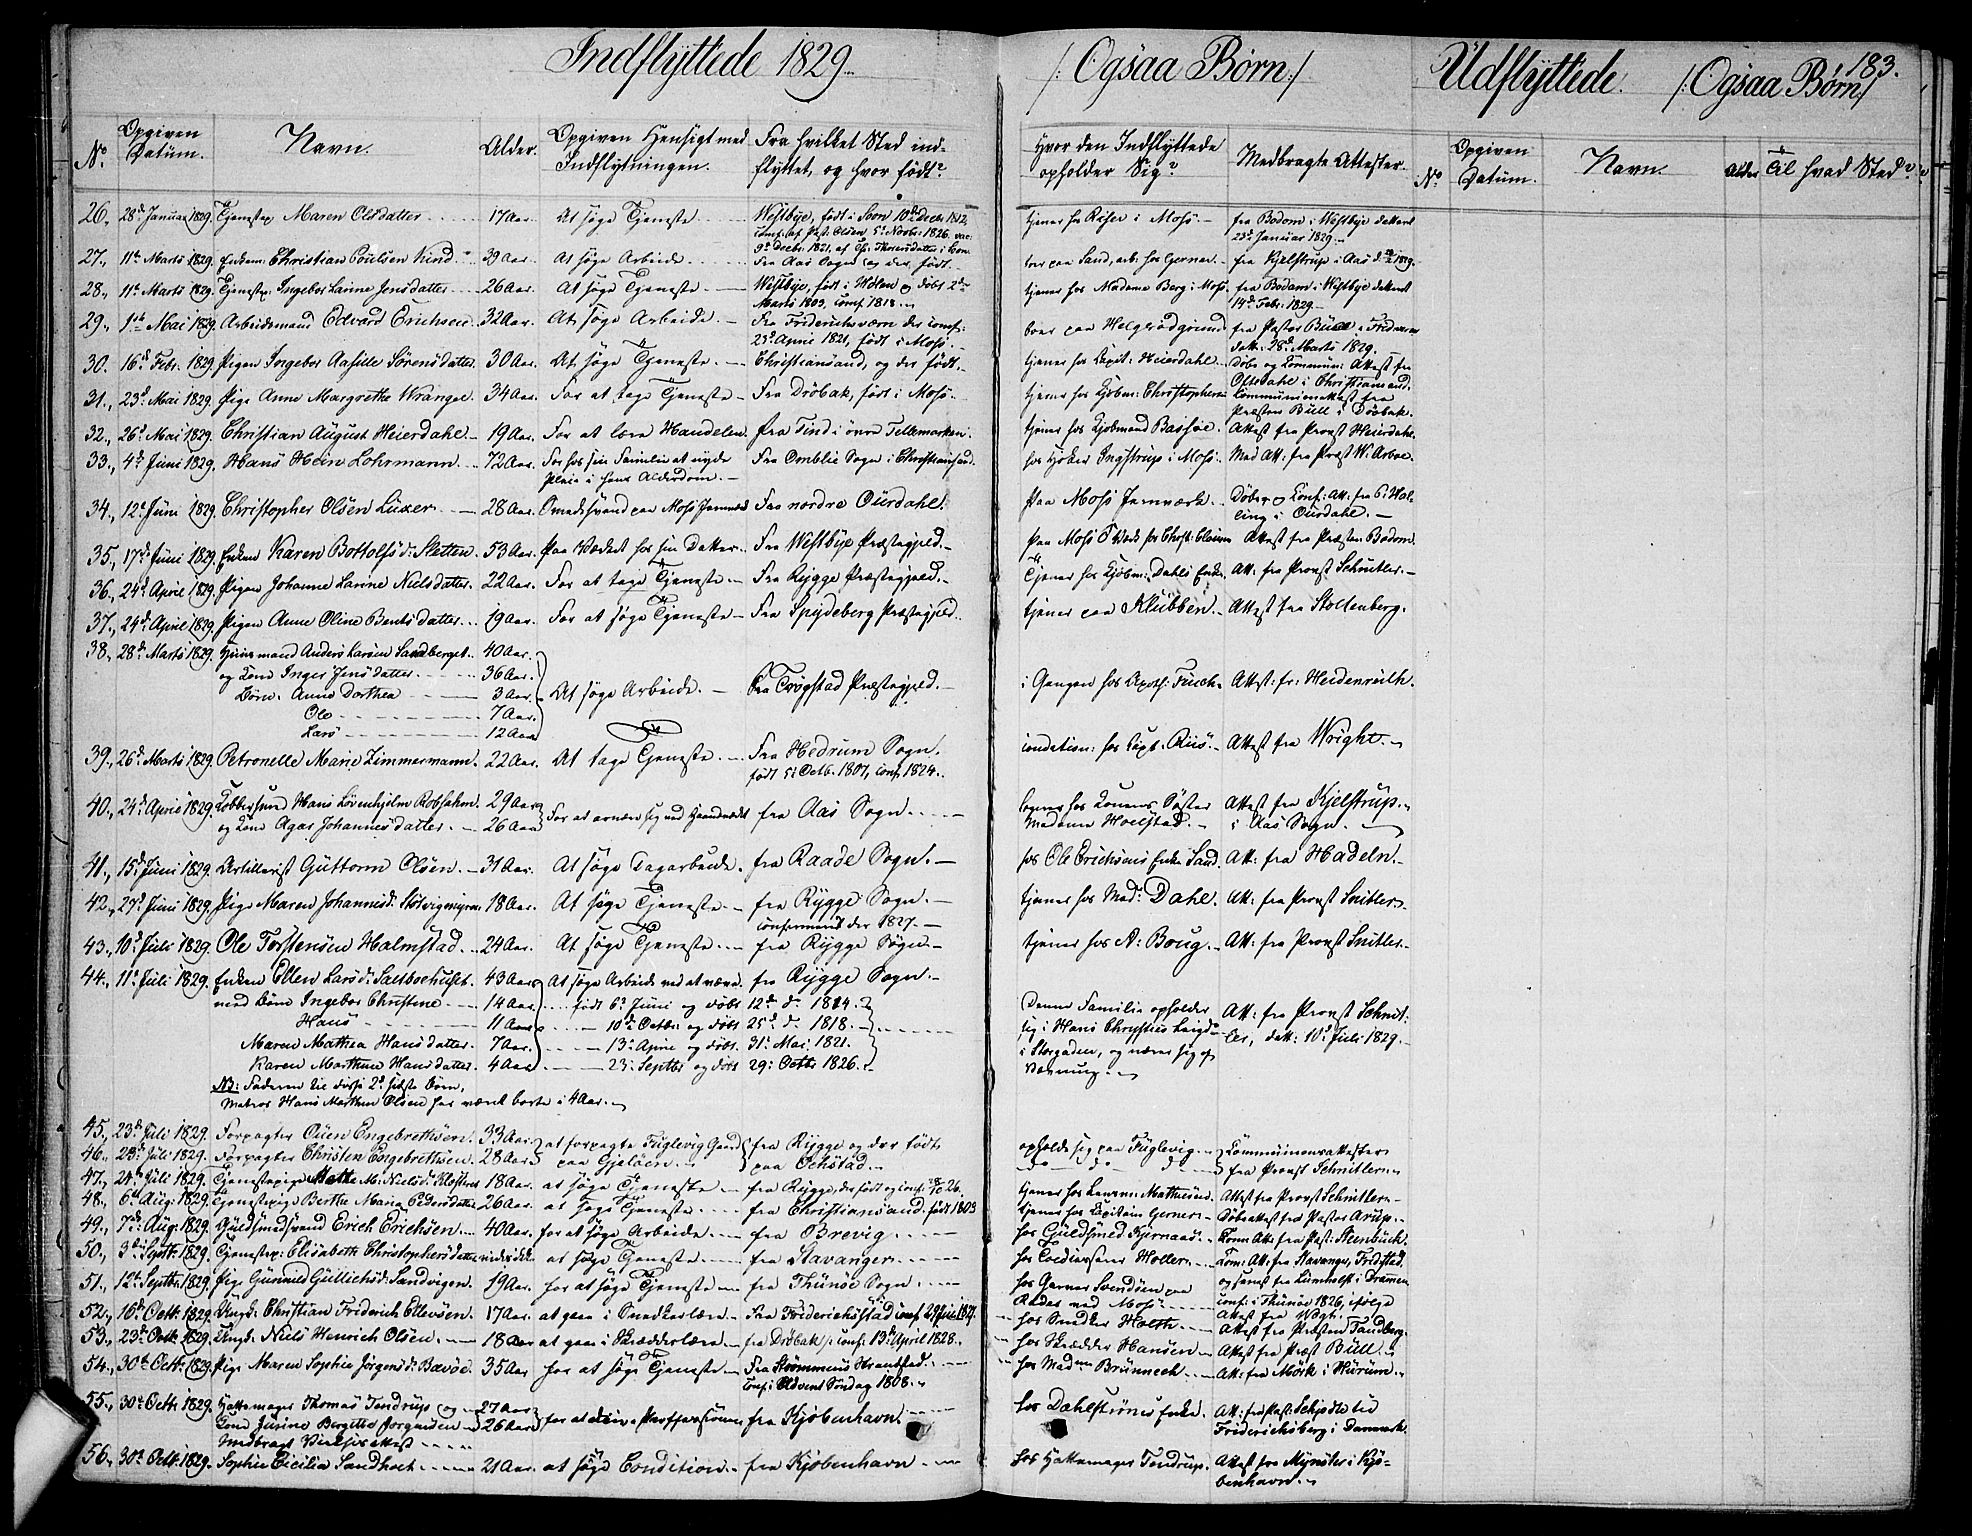 Indflyttede 1829.
/: Ogsaa Børn :/
Udflyttede. /: Ogsaa Børn :/
183.
No. Opgiven Datum. Navn. Alder. Opgiven Hensigt med Indflytningen. Fra hvilket Sted indflyttet, og hvor født? Hvor den Indflyttede opholder Sig? Medbragte Attester.
No. Opgiven Datum. Navn. Alder Til hvad Sted?
26., 28de Januar 1829. Tjenestep. Maren Olsdatter 17 Aar. At søge Tjeneste Westbye, født i Soon 10de Decbr 1812 tjener hos Riser i Moss. fra Bodom i Westbye datteret
Conf: af Past. Olsen 5te Novbr. 1826. vac: 23de Januar 1829.
9de Decbr. 1821. af
27., 11te Marts 1829. Christian Poulsen Kind 39 Aar. At søge Arbeide Fra Aas Sogn og der født. boer paa Sand, arb. hos Gerner. fra Kjelstrup i Aas
28., 11te Marts 1829. Tjenestep. Ingebor Larine Jensdatter 26 Aar. At søge Tjeneste Westbye, født i Hølen og døbt 2den tjener hos Madame Berg i Moss. fra Bodom i Westbye datteret
Marts 1803, Conf. 1818. 14de Febr. 1829.
29., 1ste Mai 1829. Arbeidsmand Edvard Erichsen 32 Aar. At søge Arbeide. Fra Friderichsværn der Conf: boer paa Helgerødgrund fra Pastor
23de April 1821, født i Moss. datt. 28de Marts 1829.
30. 16de Febr. 1829. Pigen Ingebor Aasille Sørensdatter 30 Aar. At søge Tjeneste Christiansand, og der født. tjener hos Capit. Heierdahl. Døbe og Communion Attest fra
Oftedahl i Christiansand.
31., 23de Mai 1829. Pige Anne Margrethe Wrangel 34 Aar. For at tage Tjeneste Fra Drøbak, født i Moss. tjener hos Kjøbm: Christophersen Communionattest fra
Præsten Bull i Drøbak.
32., 26de Mai 1829. Christian August Heierdahl 19 Aar. For at lære Handelen. fra Tind i øvre Tellemarken. tjener hos Kjøbmand Bassøe. Attest fra Provst Heierdahl.
33., 4de Juni 1829. Hans Hein Lohrmann 72 Aar. For hos sin Familie at nyde Fra Omblie Sogn i Christiansand. hos Høker Ingstrup i Moss. Med Att: fra Præst W. Arboe.
Pleie i hans Alderdom.
34., 12te Juni 1829. Christopher Olsen Luxer 28 Aar. Omedsvend paa Moss Jernværk Fra nordre Ourdahl. paa Moss Jernværk. Døbe og Conf: Att. fra
i Ourdahl.
35., 17de Juni 1829. Enken Karen Bottolfsd: Sletten. 53 Aar. paa Værket hos sin Datter. Fra Westbye Præstegjeld. paa Moss Værk hos Attest fra Præsten Bodom.
36., 24de April 1829. Pigen Johanne Larine Nielsdatter. 22 Aar. For at tage Tjeneste. Fra Rygge Præstegjeld. Tjener hos Kjøbm: Dahls Enke. Att. fra Provst Schnitler.
37., 24de April 1829. Pigen Anne Oline Bentsdatter 19 Aar. For at søge Tjeneste Fra Spydeberg Præstegjeld. tjener paa Klubben. Attest fra Stoltenberg.
38., 28de Marts 1829. Huusmand Anders Larsen Sandberget. 40 Aar.
og Kone Inger Jensdatter 36 Aar.
Børn: Anne Dorthea 3 Aar. At søge Arbeide. fra Trøgstad Præstegjeld. i Gangen hos Apoth: Fusch. Attest: fr: Heidenreich.
Ole 7 Aar.
Lars 12 Aar.
39., 26de Marts 1829. Petronelle Marie Zimmermann. 22 Aar. At tage Tjeneste. Fra Hedrum Sogn. condition: hos Capt. Riis. Attest fra Wright.
født 5te Octb. 1807, Conf. 1824.
40., 24de April 1829. Kobbersmed Hans Løvenhjelm Robsahm. 29 Aar For at ernære sig ved Haandværk fra Aas Sogn. logerer hos Konens Søster Attest fra Kjelstrup
og Kone Agar Johannesdatter. 26 Aar Madame Hoelstad. i Aas Sogn.
41., 15de Juni 1829. Artillerist Guttorm Olsen. 31 Aar. At søge Dagarbeide. fra Raade Sogn. hos Ole Erichsens Enke Sand. Att: fra Hadeln.
42., 27de Juni 1829. Pige Maren Johannisd: 18 Aar. At søge Tjeneste fra Rygge Sogn. tjener hos Mad: Dahl. Att: fra Provst Snitler.
Confermeret der 1827.
43., 10de Juli 1829. Ole Torstensen Halmstad 24 Aar. At søge Tjeneste fra Rygge Sogn. tjener hos A: Boug. Att: fra Provst Snitler.
44., 11te Juli 1829. Enken Ellen Larsd: Saltboehuset. 43 Aar At søge Arbeide ved at væve. fra Rygge Sogn.
med Børn Ingebor Christine 14 Aar født 6te Juni og døbt 12te do 1814. Denne Familie opholder Att: fra Provst Schnit-
Hans 11 Aar 10de Octbr. og døbt 25de do 1818. sig i Hans Chrysties ler, datt: 10de Juli 1829.
Maren Mathea Hansdatter. 7 Aar. 13de April og døbt 31te Mai 1821. i Storgaden, og nærer sig af
Karen Marthine Hansdatter. 4 Aar 23: Septbr og døbt 29: Octbr 1826. Vævning.
NB: Faderen til disse 2de sidste Børn,
Matros Hans Marthin Olsen har været borte i 4 Aar.
45., 23de Juli 1829. Forpagter Ouen Engebrethsen. 33 Aar at forpagte Fuglevig Gaard fra Rygge og der født opholde sig paa Fuglevig. Communionsattester
46., 23de Juli 1829. Forpagter Christen Engebrethsen. 28 Aar paa Gjeløen. paa Ochstad. do do do fra Provst Schnitler.
47., 24de Juli 1829. Tjenestepige Mette M. Nielsd: Kloster 18 Aar. at søge Tjeneste fra Rygge, der født og conf. tjener hos Mathiesen. Attest fra Provst Schnitler.
48., 6te Aug: 1829. Tjenestepige Berthe Maria Pedersdatter 26 Aar. at søge Tjeneste fra Christiansand. født 1803 tjener hos Capitain Gerner. Døbeattest fra Pastor Arup.
49., 7de Aug: 1829. Guldsmedsvend Erich Erichsen. 40 Aar. for at søge Arbeide fra Brevig. hos Guldsmed Kjernaas. Com: Att: fra Past. Steenbuch.
50., 3de Septbr. 1829. Tjenestep: Elisabeth Christophersdatter at søge Tjeneste. fra Stavanger. hos Holter. Com: Att: fra Stavanger, Fridstad
51., 12te Septbr. 1829. Pige Gunnild Gullichsd: Sandvigen. 19 Aar. for at søge Tjeneste fra Thunøe Sogn. hos Garver Svendsen paa og senest fra i Drammen.
ved Moss conf: i Thunøe 1826, ifølge
52., 16de Octbr. 1829. Ungk. Christian Friderich Ellevsen. 17 Aar. at gaae i Snedkerlære. Fra Friderichsstad conf. hos Snedker Holth. Attest fra Wogh.
53., 23de Octbr. 1829. Ungk. Niels Henrich Olsen. 18 Aar at gaae i Skrædderlære. fra Drøbak, conf: 13de April 1828. hos Skrædder Hansen Attest fra Præst Bull.
54., 30te Octbr. 1829. Pige Maren Sophie Jørgensd: Bævøe. 35 Aar for at søge Tjeneste Fra Strømmens hos Madme Brünnech Att: fra Mørk i Hurum.
Conf: Advent Søndag 1808.
55., 30te Octbr. 1829. Hattemager Thomas Tendrup og 27 Aar for at drive Professionen fra Kjøbenhavn. hos Dahlstrøms Enke. Att: fra Past: Schjødte til
Kone Jusine Bergitte Jørgensen 26 Aar Friderichsberg i Danmark.
Medbragt Vielsesattest
56., 30te Octbr. 1829. Sophie Cicilia Sandholt 21 Aar. at søge Condition. fra Kjøbenhavn hos Hattemager Tendrup. Attest fra Mynster i Kjø-
benhavn.